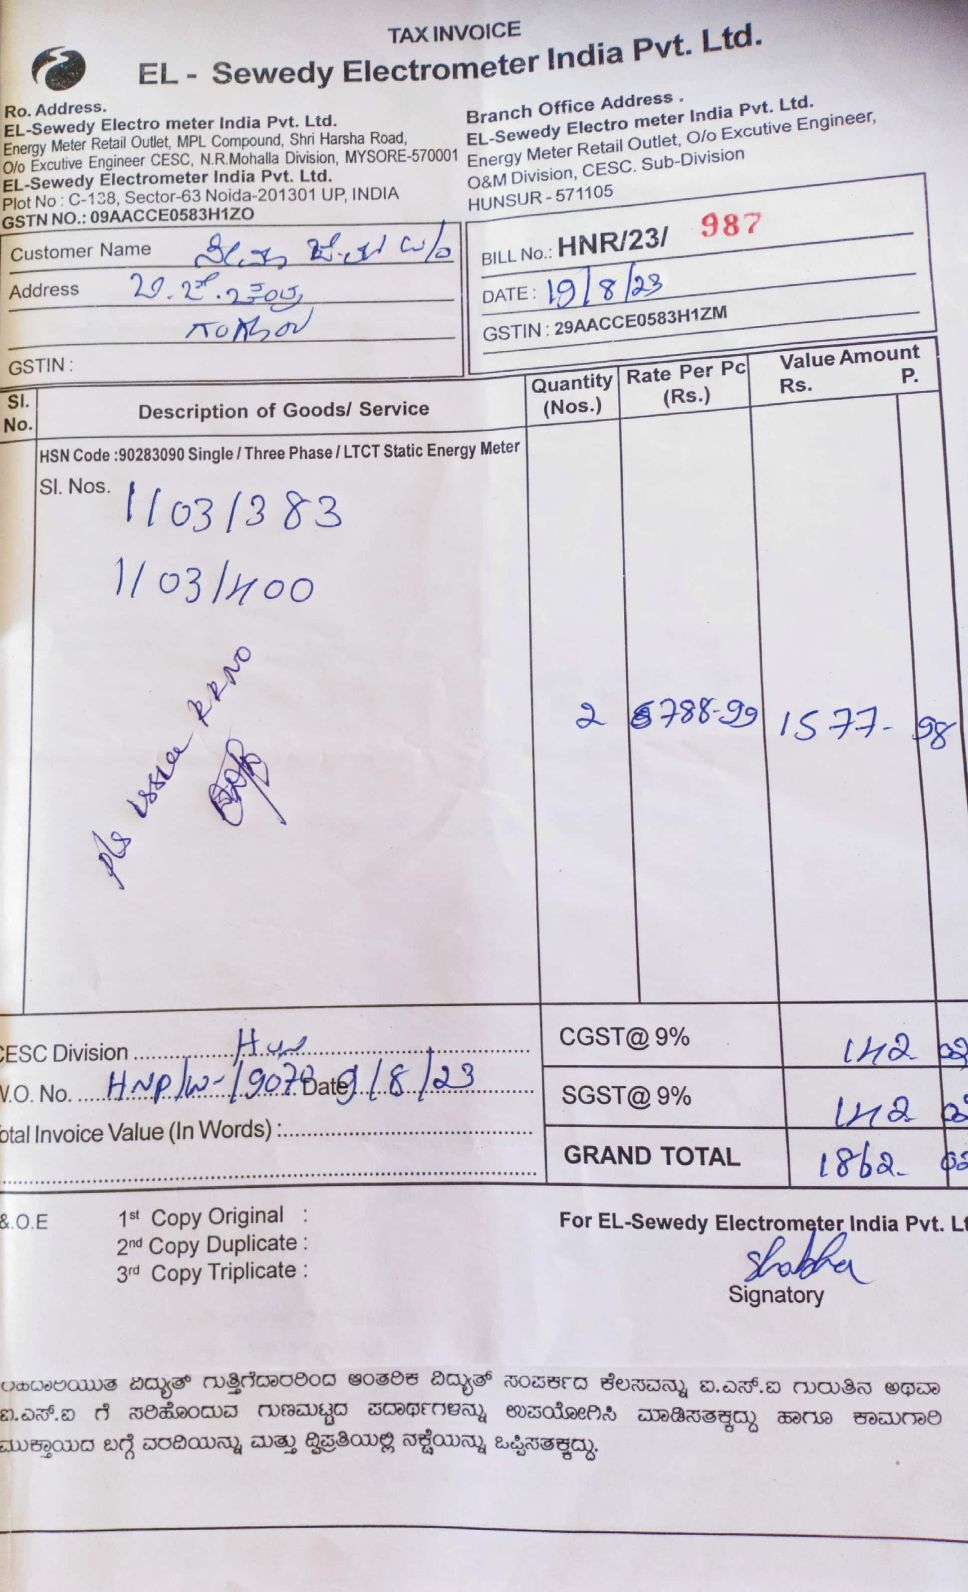 TAX INVOICE
EL - Sewedy Electrometer India Pvt. Ltd.
Ro. Address.
EL-Sewedy Electro meter India Pvt. Ltd.
Energy Meter Retail Outlet, MPL Compound, Shri Harsha Road,
O/o Excutive Engineer CESC, N.R.Mohalla Division, MYSORE-570001
EL-Sewedy Electrometer India Pvt. Ltd.
Plot No : C-138, Sector-63 Noida-201301 UP, INDIA
GSTN NO.: 09AACCE0583H1ZO
Branch Office Address .
EL-Sewedy Electro meter India Pvt. Ltd.
Energy Meter Retail Outlet, O/o Excutive Engineer,
O&M Division, CESC. Sub-Division
HUNSUR - 571105
Customer Name
Address
GSTIN :
BILL No.: HNR/23/ 987
DATE : 19/8/23
GSTIN : 29AACCE0583H1ZM
Sl. No. Description of Goods/ Service Quantity (Nos.) Rate Per Pc (Rs.) Value Amount Rs. P.
HSN Code :90283090 Single / Three Phase / LTCT Static Energy Meter
Sl. Nos. 1/03/383
1/03/400
Pls issue RRNO
2 788-99 1577- 98
CESC Division Hun
CGST@ 9% 142 02
W.O. No. Date 9/8/23
SGST@ 9% 142 02
Total Invoice Value (In Words) :
GRAND TOTAL 1862- 02
&.O.E
1st Copy Original :
2nd Copy Duplicate :
3rd Copy Triplicate :
For EL-Sewedy Electrometer India Pvt. Lt
Shobha
Signatory
ವಿದ್ಯುತ್ ಗುತ್ತಿಗೆದಾರರಿಂದ ಆಂತರಿಕ ವಿದ್ಯುತ್ ಸಂಪರ್ಕದ ಕೆಲಸವನ್ನು ಐ.ಎಸ್.ಐ ಗುರುತಿನ ಅಥವಾ
ಐ.ಎಸ್.ಐ ಗೆ ಸರಿಹೊಂದುವ ಗುಣಮಟ್ಟದ ಪದಾರ್ಥಗಳನ್ನು ಉಪಯೋಗಿಸಿ ಮಾಡಿಸತಕ್ಕದ್ದು ಹಾಗೂ ಕಾಮಗಾರಿ
ಮುಕ್ತಾಯದ ಬಗ್ಗೆ ವರದಿಯನ್ನು ಮತ್ತು ದ್ವಿಪ್ರತಿಯಲ್ಲಿ ನಕ್ಷೆಯನ್ನು ಒಪ್ಪಿಸತಕ್ಕದ್ದು.